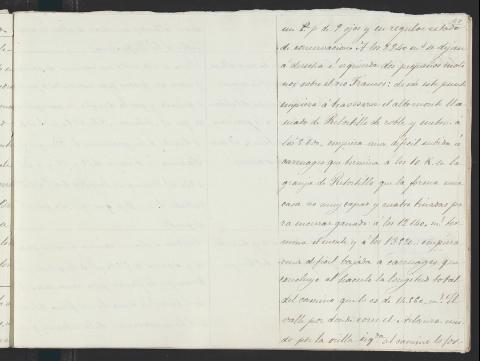 un P.^te de 9 ojos y en regular estado
de conservacion. A los 8240 m.^s se dejan
á derecha é izquierda dos pequeños moli
nos sobre el rio Franco: desde este punto
empieza á travesarse el alto monte lla
mado de Retortillo de roble y enebro. á
los empieza una dificil subida á
carruages que termina á los 10 K. en la
granja de Retortillo que la forma una
casa no muy capaz y cuatro tinadas pa
ra encerrar ganado á los 12140. m.^s ter
mina el monte y á los 13220. empieza
una dificil bajada á carruages que
concluye al hacerlo la longitud total
del camino que lo es de 14520. m.^s El
valle por donde corre el Arlanza uni
do por la orilla izq.^da al camino lo for-